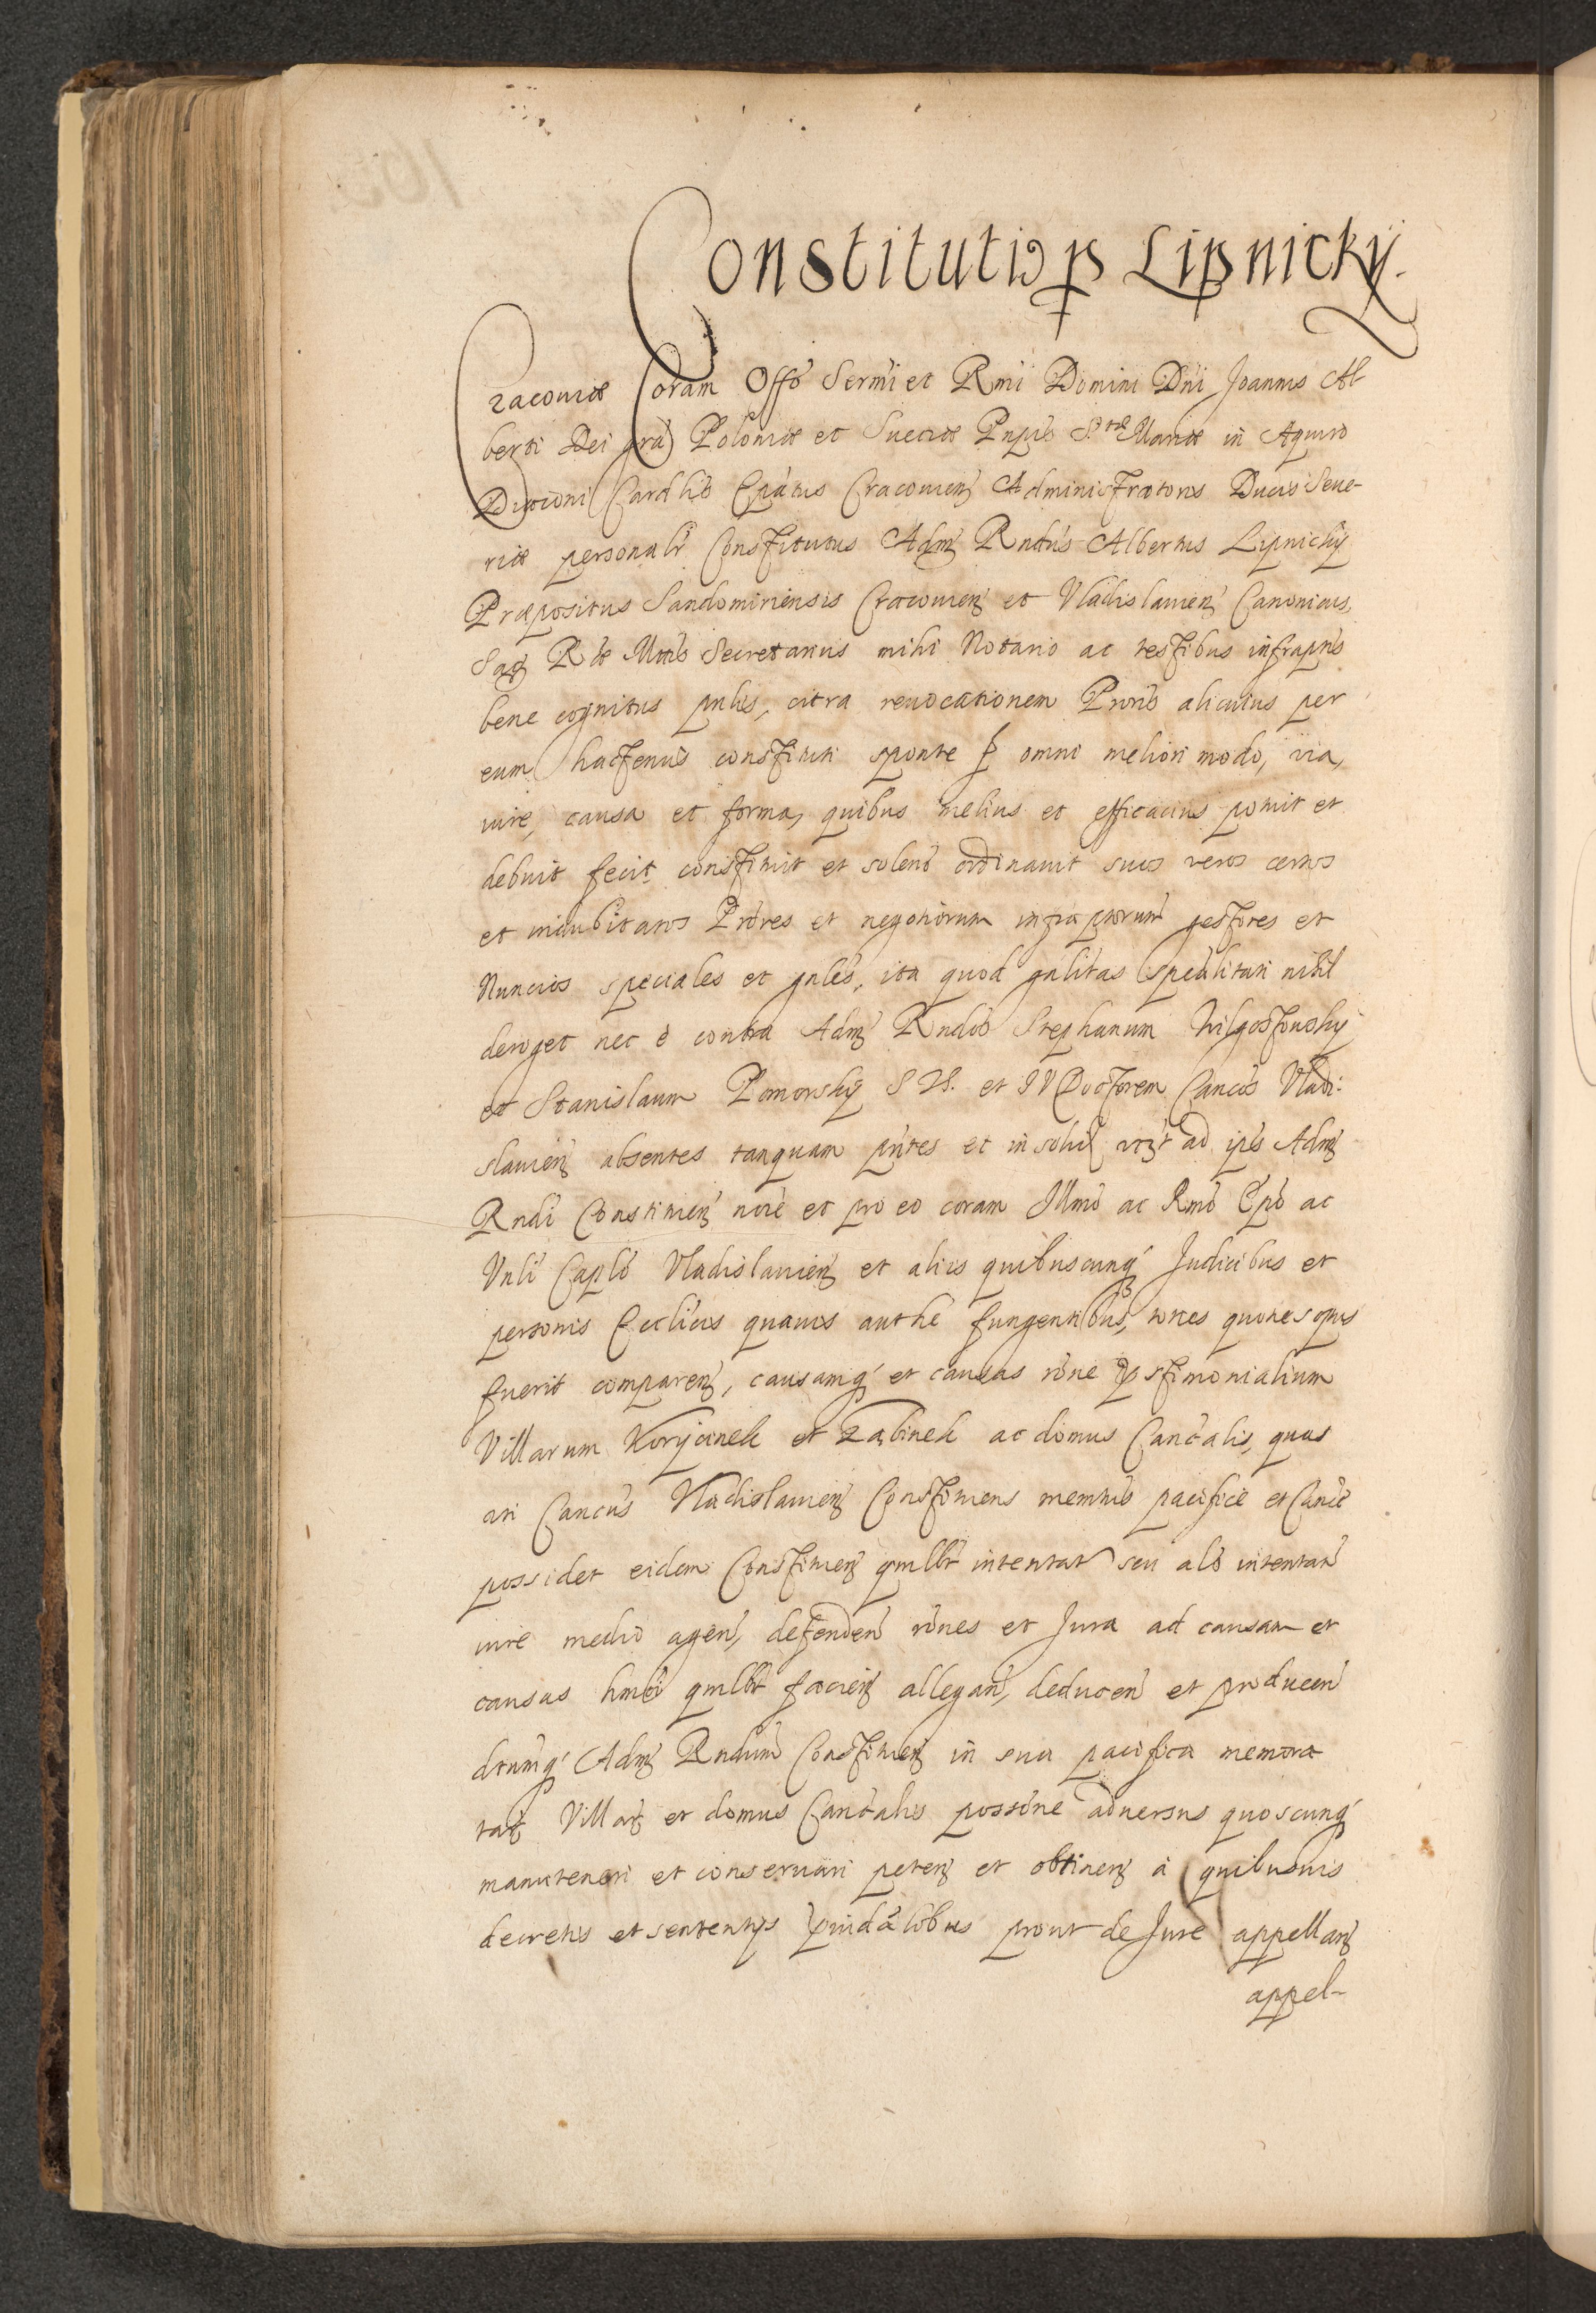 Constitutio p Lipnicky.
Cracoviæ Coram Offō Sermi et Rmi Domini Dni Joannis Al-
berti Dei grā Poloniæ et Sueciæ Prpis S.tæ Mariæ in Aquiro
Diaconi Cardlis Epatus Cracovien Administratoris Ducis Seve-
riæ personalr Constitutus Adm Rndus Albertus Lipnicky
Præpositus Sandomiriensis Cracovien et Vladislavien Canonicus,
Sac Ræ Mttis Secretarius mihi Notario ac testibus infraptis
bene cognitus pnlis, citra revocationem Prōris alicuius per
eum hactenus constituti sponte p omni meliori modo, via,
iure, causa et forma, quibus melius et efficacius potuit et
debuit fecit constituit et solenr ordinavit suos veros certos
et indubitatos Prōres et negotiorum infraptorum gestores et
Nuncios speciales et gnles, ita quod gnlitas spealitati nihil
deroget nec è contra Adm Rndos Stephanum Wilgostowsky
et Stanislaum Pomorsky S Th. et IV Doctorem Cancos Vladi:
slavien absentes tanquam pntes et in solid vtzt ad ips Adm
Rndi Constituen noīe et pro eo coram Illmo ac Rmo Epo ac
Vnli Caplo Vladislavien et aliis quibuscunq Judicibus et
personis Ecclicis quavis authe fungentibus, toties quoties opus
fuerit comparen, causamq et causas rōne pstimonialium
Villarum Korycinek et Ząbinek ac domus Cancalis, quas
uti Cancus Vladislavien Constituens memtus pacifice et Canice
possidet eidem Constituen qmlbt intentat seu als intentan
iure medio agen, defenden rōnes et Jura ad causam et
causas hmōi qmlbt facien allegan, deducen et producen
dtumq Adm Rndum Constituen in sua pacifica memora
tar Villar et domus Cancalis possōne adversus quoscunq
manuteneri et conservari peten et obtinen à quibusvis
decretis et sententys pindālibus prout de Jure appellan
appel-